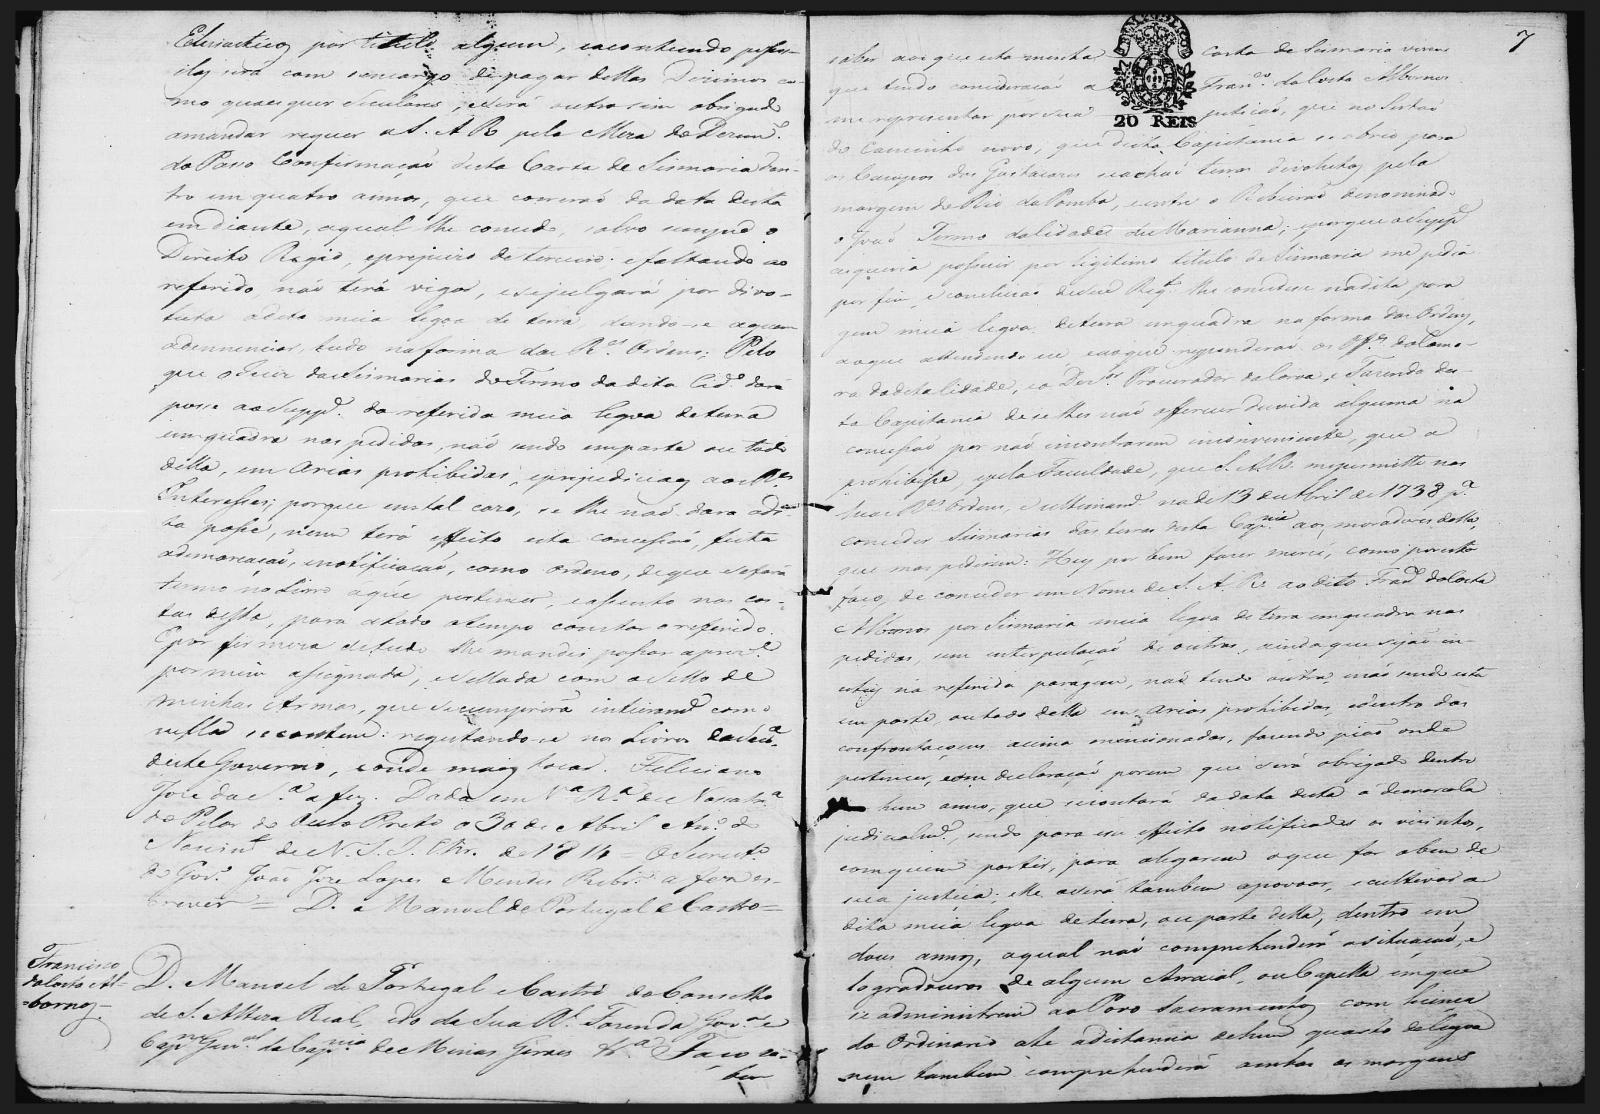 Eclesiasticos por titulo algum, e acontecendo possui-
llas será com o encargo de pagar dellas Dizimos co-
mo quaes quer Seculares; e será outro sim obrigado
amandar requer a S. A R pela Meza do Dezem.º
do Paço Confirmação desta Carta de Sismaria den-
tro em quatro annos, que correrão da data desta
em diante, aqual lhe concedo, salvo sempre o
Direito Regio, e prejuizo de terceiro; e faltando ao
referido, não terá vigor, e se julgará por divo-
luta a dita meia legoa de terra dando-se a quem
adenunciar, tudo na forma das R.es Ordens: Pelo
que o Juiz das Sismarias do Termo da dita Cid.e dará
posse ao Supp.e da referida meia legoa de terra
em quadra nas pedidas, não sendo em parte ou todo
della, em Arias prohibidas, e prejudiciaes aos R.es
Interesses; porque em tal cazo, se lhe não dará a di-
ta posse, nem terá effeito esta concessão, feita
ademarcação, e notificação, como ordeno, de que se fará
termo no Livro a que pertencer, e assento nas cos-
tas desta, para atodo o tempo constar o referido.
E por firmeza de tudo lhe mandei passar a prez.e
por mim assignada, e sellada com o sello de
minhas Armas, que se cumprirá inteiram.e como
nella se contem: registando-se nos Livros da Secr.a
deste Governo, e onde mais tocar. Feliciano
Joze da S.a a fez. Dada em V.a R.a de N. Snr.a
do Pilar do Ouro Preto a 30 de Abril An.o do
Nascim.to de N. S. J. Chr. de 1814 = O Secret.o
do Gov.o João Joze Lopes Mendes Ribr.o a fez es-
crever = D. Manoel de Portugal e Castro =
Francisco
da Costa Al-
bornos.
D. Manoel de Portugal e Castro do Conselho
de S. Alteza Real, e do da Sua R.l Fazenda Gov.or e
Cap.m Gen.al da Cap.nia de Minas Geraes &.a Faço sa-
ber
7
20 REIS
saber aos que esta minha Carta de Sismaria virem
que tendo consideração a Fran.co da Costa Albornos
me representar por sua petição, que no Sertão
do Caminho novo, que desta Capitania se abrio para
os Campos dos Goitacazes se achão terras devolutas pela
margem do Rio da Pomba, e entre o Ribeirão denominad-
o João Termo da Cidade de Marianna; e porque o Supp.e
as queria possuir por legitimo titulo de Sismaria me pedia
por fim, e concluzão de seu Req.to lhe concedese na dita para
gem meia legoa de terra em quadra na forma das Ordens,
ao que attendendo eu e ao que responderão os Off.es da Cama-
ra da dita Cidade, e o Dez.or Procurador da Coroa, e Fazenda des-
ta Capitania de se lhes não offerecer duvida alguma na
concessão por não encontrarem inconveniente, que a
prohibisse, e pela Faculdade, que S. A R. me permitte nas
suas R.es Ordens, e ultimam.e na de 13 de Abril de 1738 p.a
conceder Sismarias das terras desta Cap.nia aos moradores della,
que mas pedirem: Hey por bem fazer mercê, como por esta
faço, de conceder em Nome de S. A. R. ao dito Fran.co da Costa
Albornos por Sismaria meia legoa de terra em quadra nas
pedidas, sem interpolação de outras, ainda que sejão in-
uteis na referida paragem, não tendo outra, e não sendo esta
em parte, ou todo della em Arias prohibidas, e dentro das
confrontaçoens acima mencionadas, fazendo pião onde
pertencer, com declaração porem que será obrigado dentro
hum anno, que se contará da data desta a demarcala
judicialm.e, sendo para esse effeito notificados os vizinhos,
com quem partir, para alegarem o que for abem de
sua justiça; elle o será tambem a povoar, e cultivar a
dita meia legoa de terra, ou parte della, dentro em
dous annos, a qual não comprehenderá a situação, e
logradouros de algum Arraial, ou Capella em que
se administrem ao Povo Sacramentos com licença
do Ordinario até a distancia de hum quarto de legoa
nem tambem comprehenderá ambas as margens